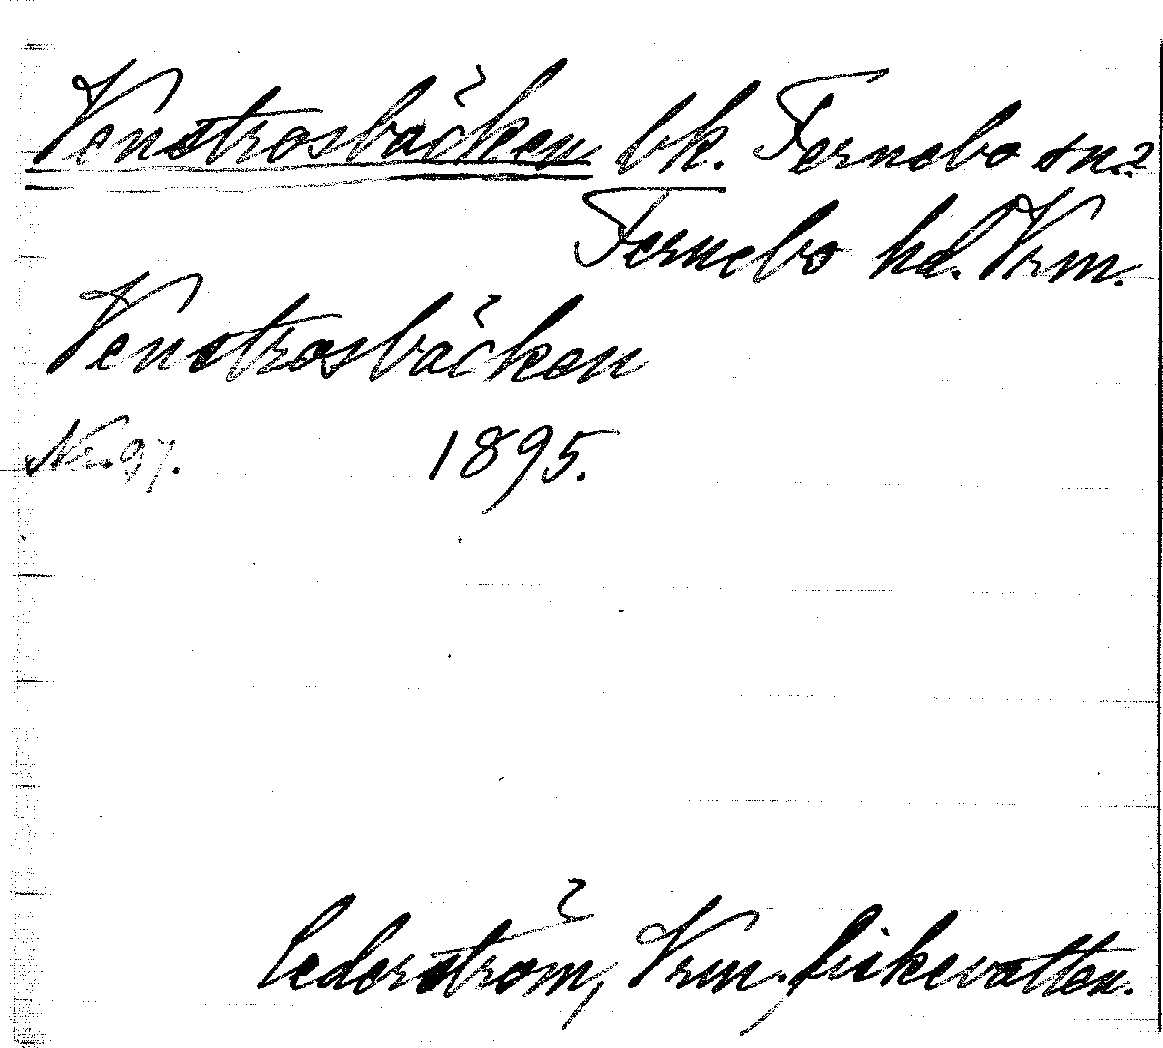 Venstrosbäcken bk. Fernebo sn?
Fernebo hd. Vrm.
Venstrosbäcken
Nr. 97. 1895.
Cederström, Vrm. fiskevatten.